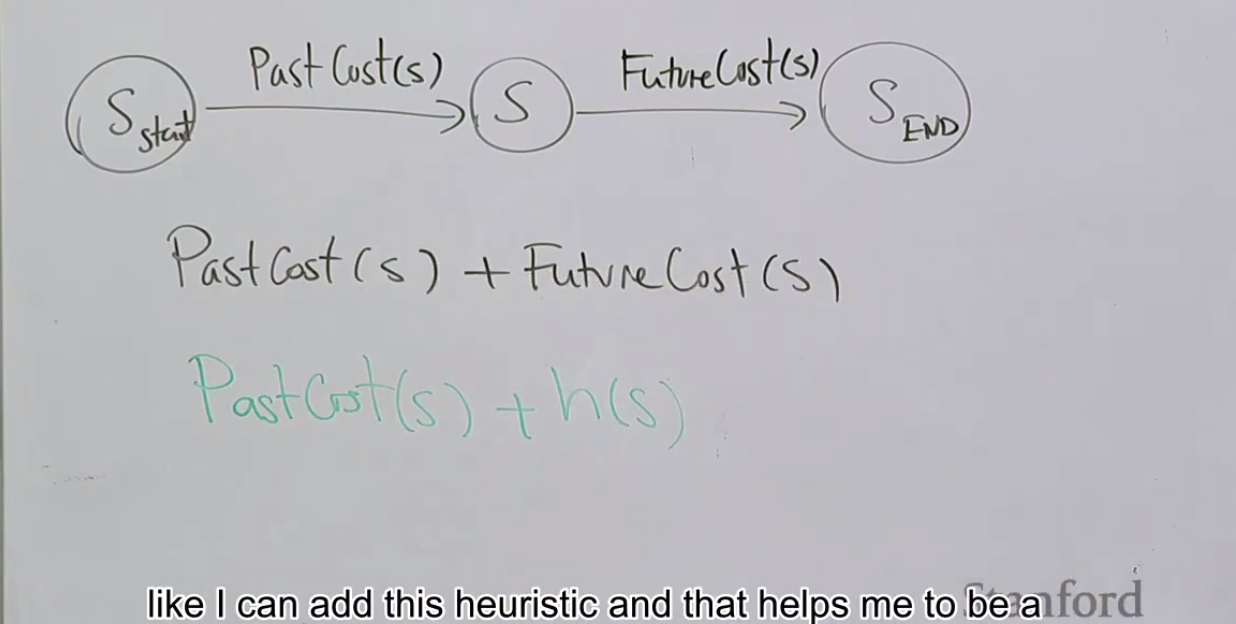 PastCost(s) FutureCost(s)
S start S S END
PastCost(s) + FutureCost(s)
PastCost(s) + h(s)
like I can add this heuristic and that helps me to be a
Stanford